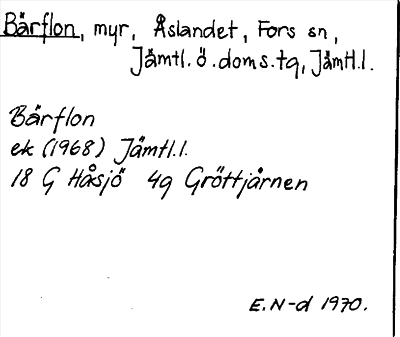 Bärflon, myr, Åslandet, Fors sn,
Jämtl.ö.doms.tg, Jämtl.l.
Bärflon
ek (1968) Jämtl.l.
18 G Håsjö 4g Gröttjärnen
E.N-d 1970.